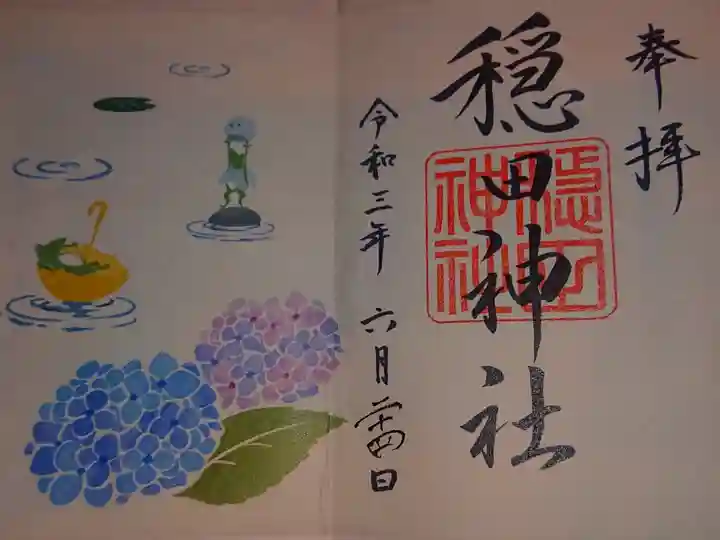 奉拝
穏田神社
穏田神社
令和三年 六月二十四日